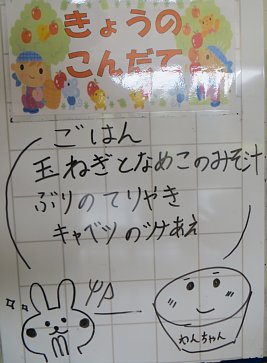 きょうの
こんだて
ごはん
玉ねぎとなめこのみそ汁
ぶりのてりやき
キャベツのツナあえ
わんちゃん